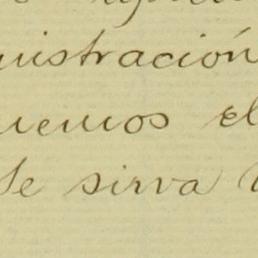 nistración
nemos el
se sirva